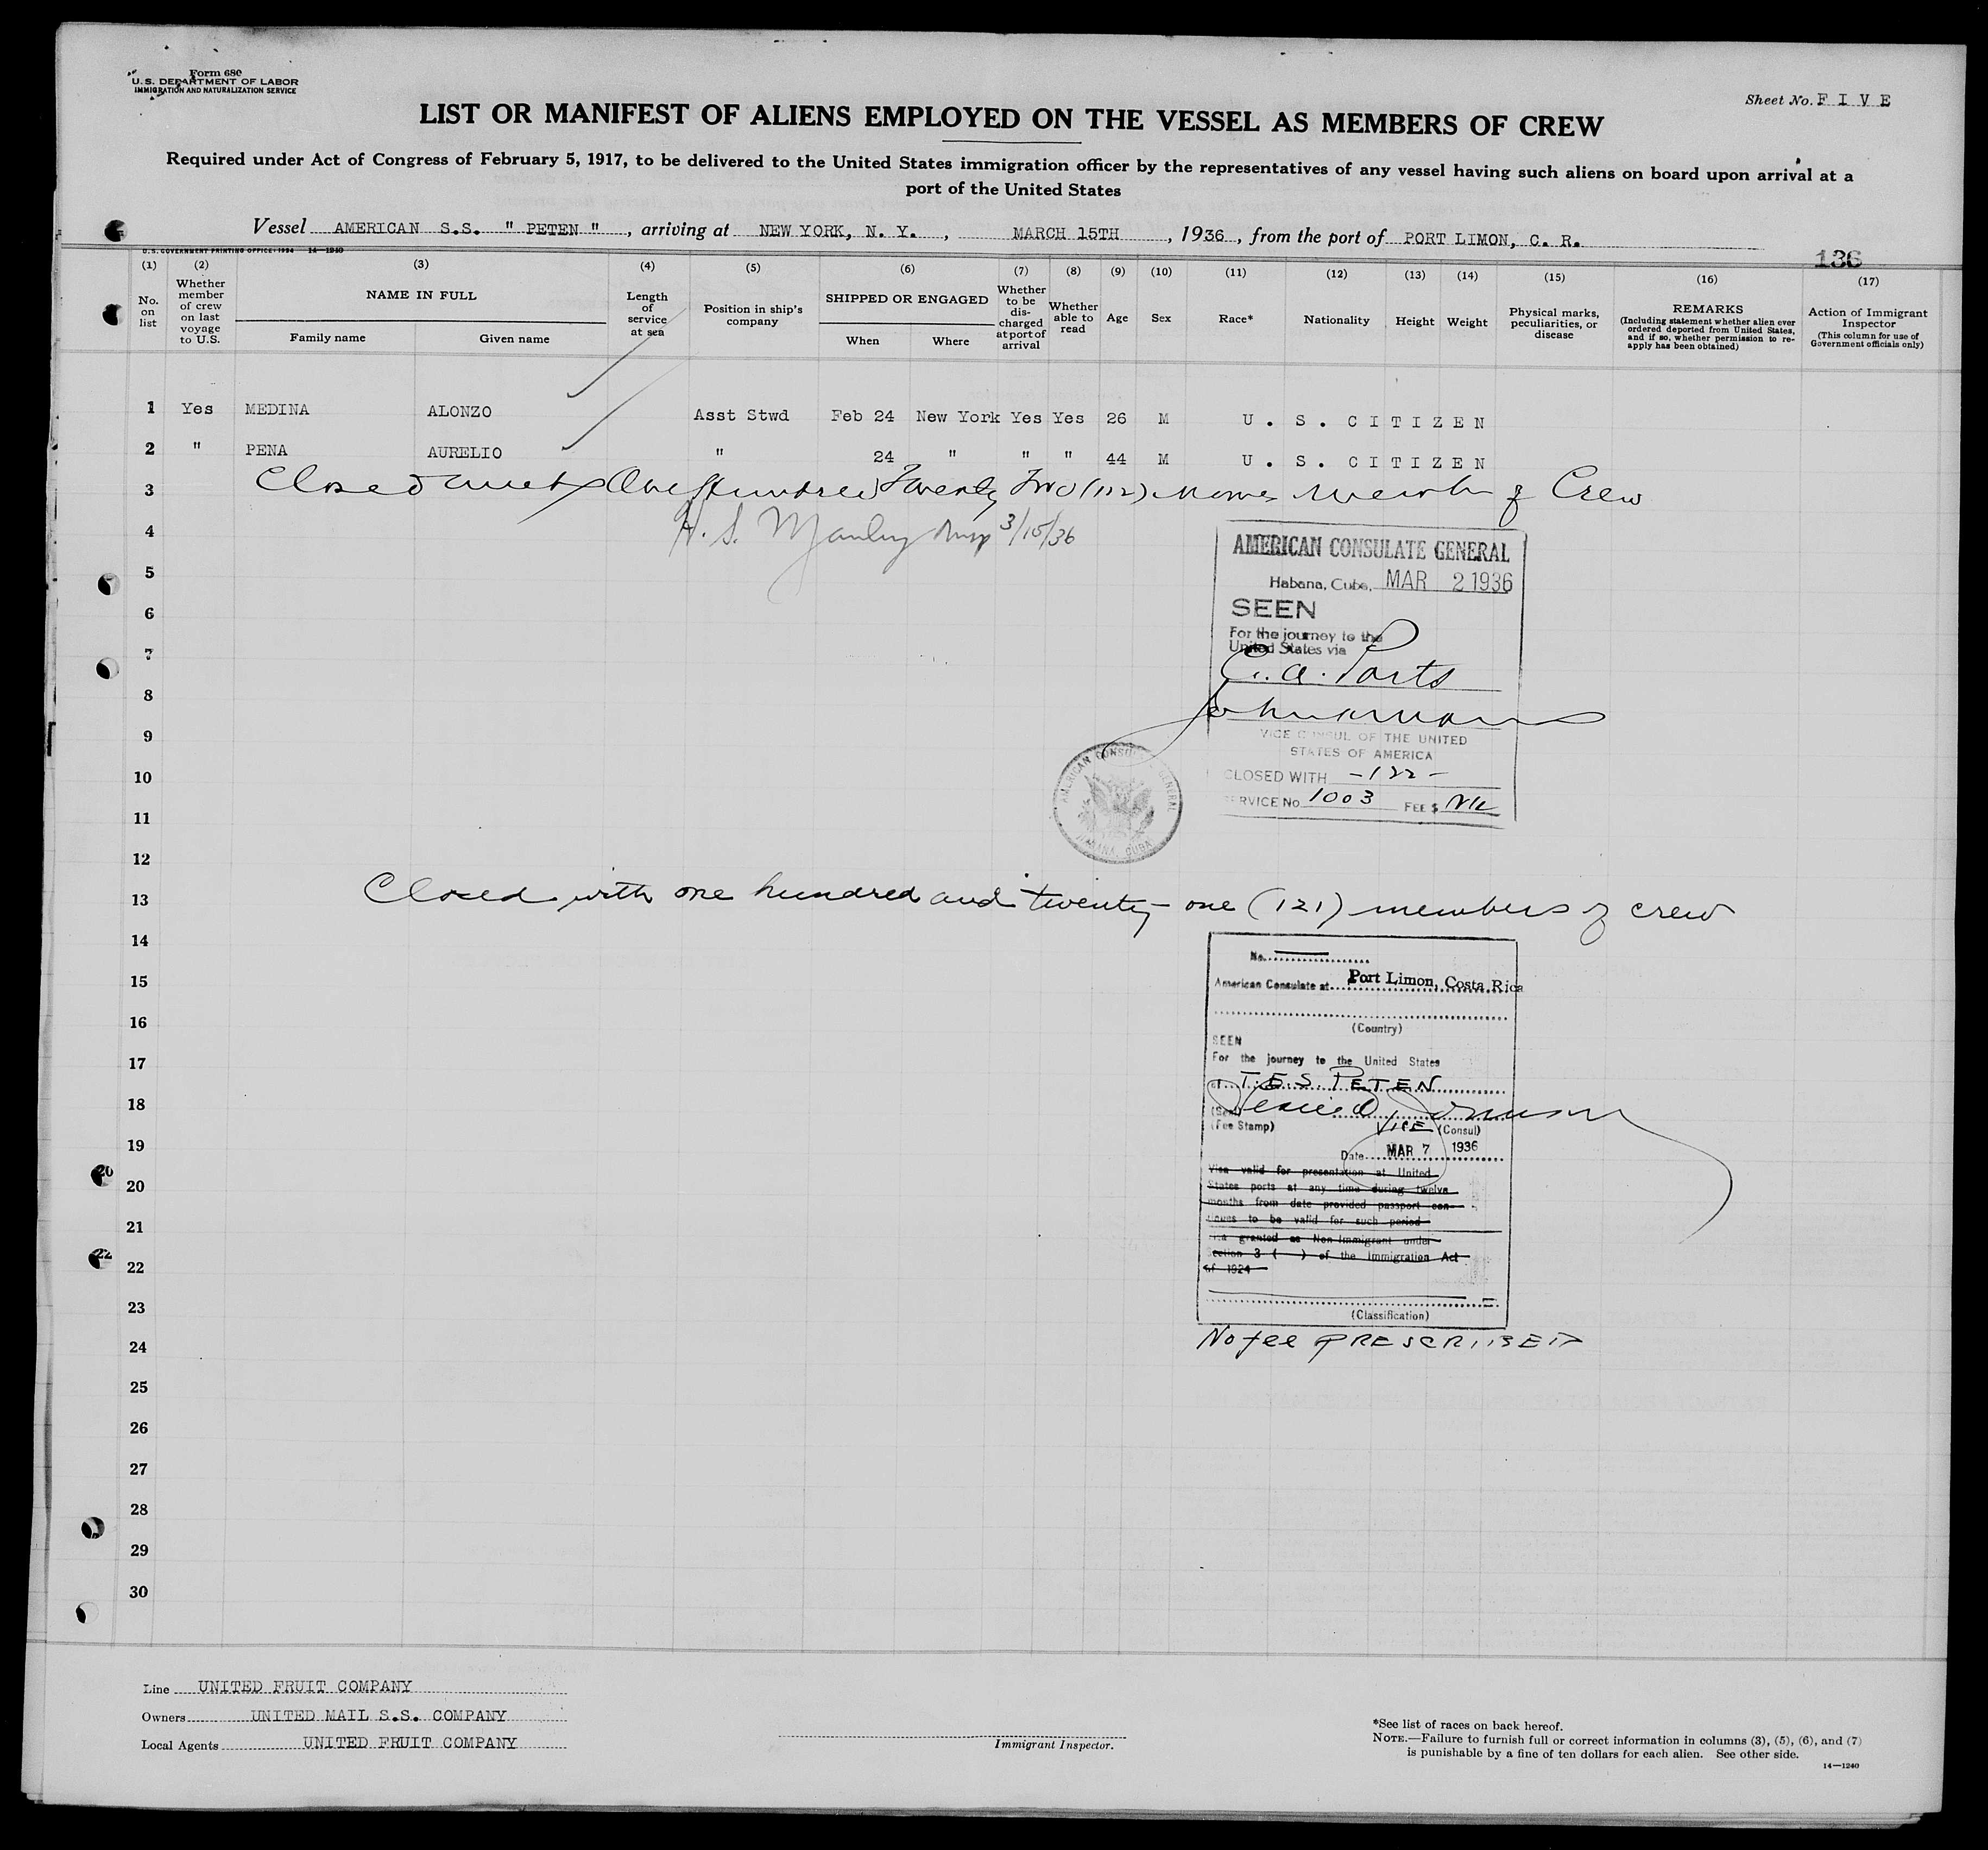 Form 680
U. S. DEPARTMENT OF LABOR
IMMIGRATION AND NATURALIZATION SERVICE
Sheet No. F I V E
LIST OR MANIFEST OF ALIENS EMPLOYED ON THE VESSEL AS MEMBERS OF CREW
Required under Act of Congress of February 5, 1917, to be delivered to the United States immigration officer by the representatives of any vessel having such aliens on board upon arrival at a
port of the United States
Vessel AMERICAN S.S. " PETEN ", arriving at NEW YORK, N. Y., MARCH 15TH, 1936, from the port of PORT LIMON, C. R.
U. S. GOVERNMENT PRINTING OFFICE: 1934 14—1240
136
(1) No. on list
(2) Whether member of crew on last voyage to U.S.
(3) NAME IN FULL
Family name
Given name
(4) Length of service at sea
(5) Position in ship's company
(6) SHIPPED OR ENGAGED
When
Where
(7) Whether to be discharged at port of arrival
(8) Whether able to read
(9) Age
(10) Sex
(11) Race*
(12) Nationality
(13) Height
(14) Weight
(15) Physical marks, peculiarities, or disease
(16) REMARKS (Including statement whether alien ever ordered deported from United States, and if so, whether permission to re-apply has been obtained)
(17) Action of Immigrant Inspector (This column for use of Government officials only)
1 Yes MEDINA ALONZO Asst Stwd Feb 24 New York Yes Yes 26 M U. S. CITIZEN
2 " PENA AURELIO " 24 " " " 44 M U. S. CITIZEN
3 Closed One Hundred Twenty Two of Crew
4 H. S. Manley 3/15/36
AMERICAN CONSULATE GENERAL
5 Habana, Cuba, MAR 2 1936
SEEN
6
For the journey to the
United States via
7
C. A. Ports
8
9
VICE CONSUL OF THE UNITED
STATES OF AMERICA
10 CLOSED WITH -122-
SERVICE No. 1003 FEE $ Nil
AMERICAN CONSULATE GENERAL
HABANA, CUBA
11
12
13 Closed with one hundred and twenty-one (121) members of crew
14
No.
15 American Consulate at Port Limon, Costa Rica
16 (Country)
SEEN
17 For the journey to the United States
T.E.S. PETEN
18
(Seal)
(Fee Stamp) VICE (Consul)
19 Date MAR 7 1936
Visa valid for presentation at United
20 States ports at any time during twelve
months from date provided passport con-
21 tinues to be valid for such period
Visa granted as Non-Immigrant under
22 Section 3 ( ) of the Immigration Act
of 1924
23
(Classification)
24 No fee PRESCRIBED
25
26
27
28
29
30
20
22
Line UNITED FRUIT COMPANY
Owners UNITED MAIL S.S. COMPANY
Local Agents UNITED FRUIT COMPANY
Immigrant Inspector.
*See list of races on back hereof.
NOTE.—Failure to furnish full or correct information in columns (3), (5), (6), and (7)
is punishable by a fine of ten dollars for each alien. See other side.
14—1240